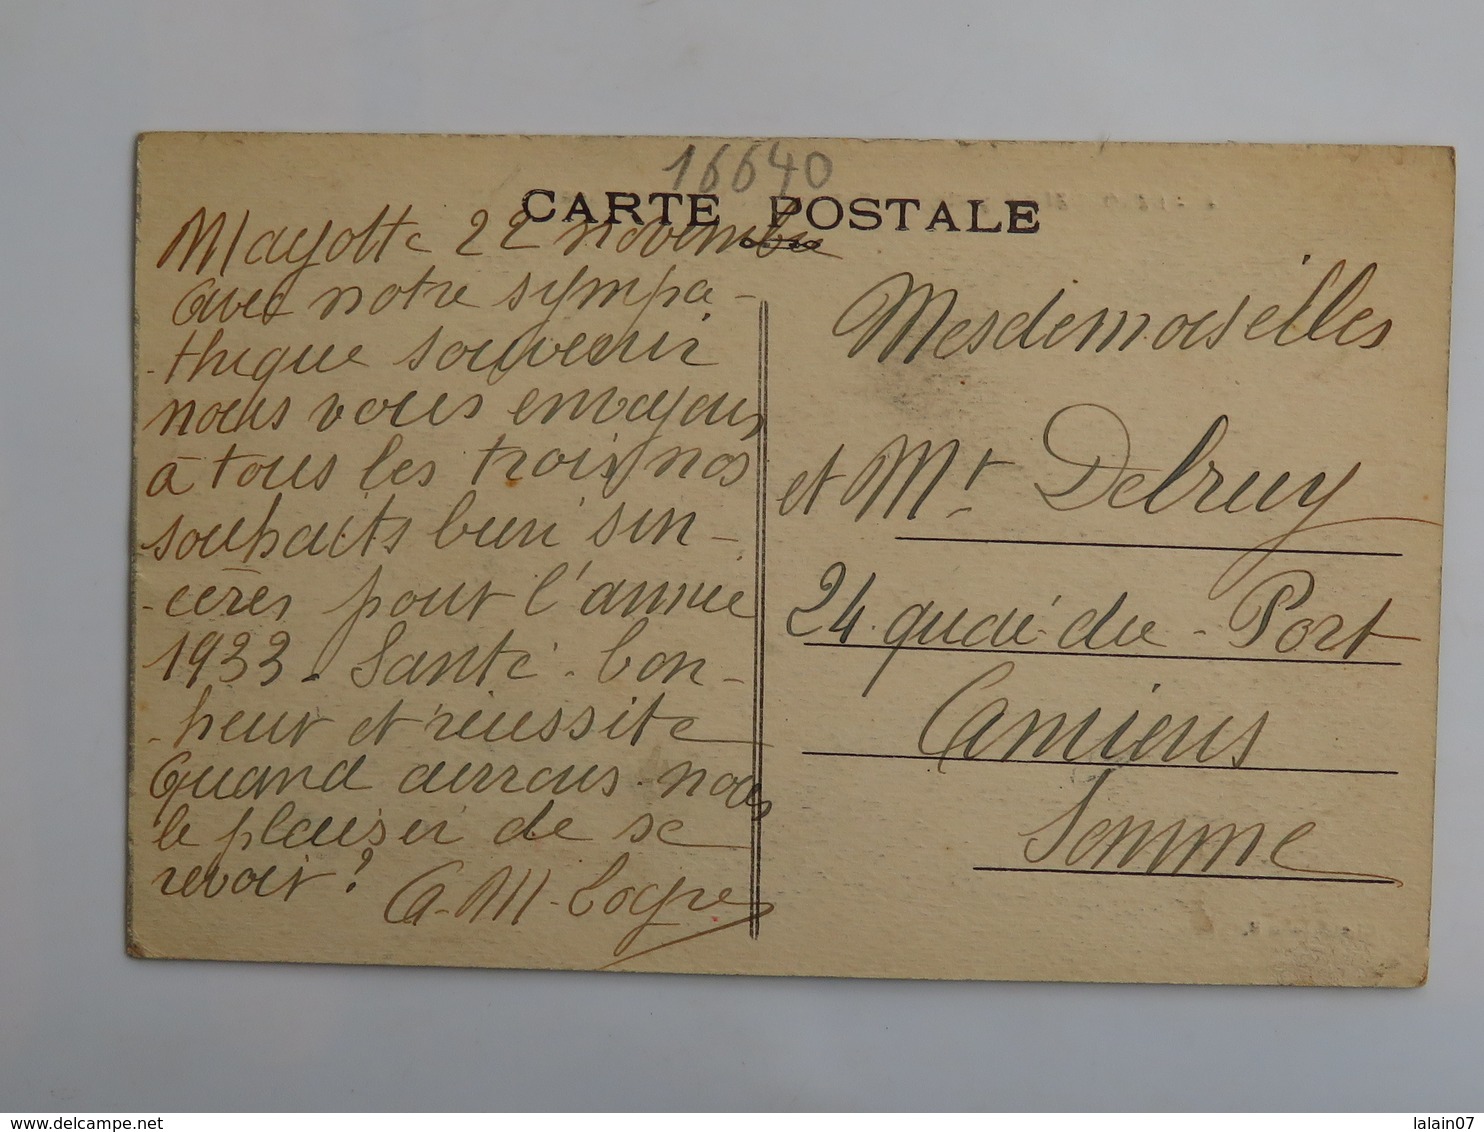 16640
CARTE POSTALE
Mayotte 22 novembre
avec notre sympa-
-thique souvenir
nous vous envoyons
à tous les trois nos
souhaits bien sin-
-cères pour l'année
1933 - Santé - bon-
-heur et réussite
Quand aurons nous
le plaisir de se
revoir?
Mesdemoiselles
et Mr Delruy
24 quai du - Port
Amiens
Somme
delcampe.net
lalain07